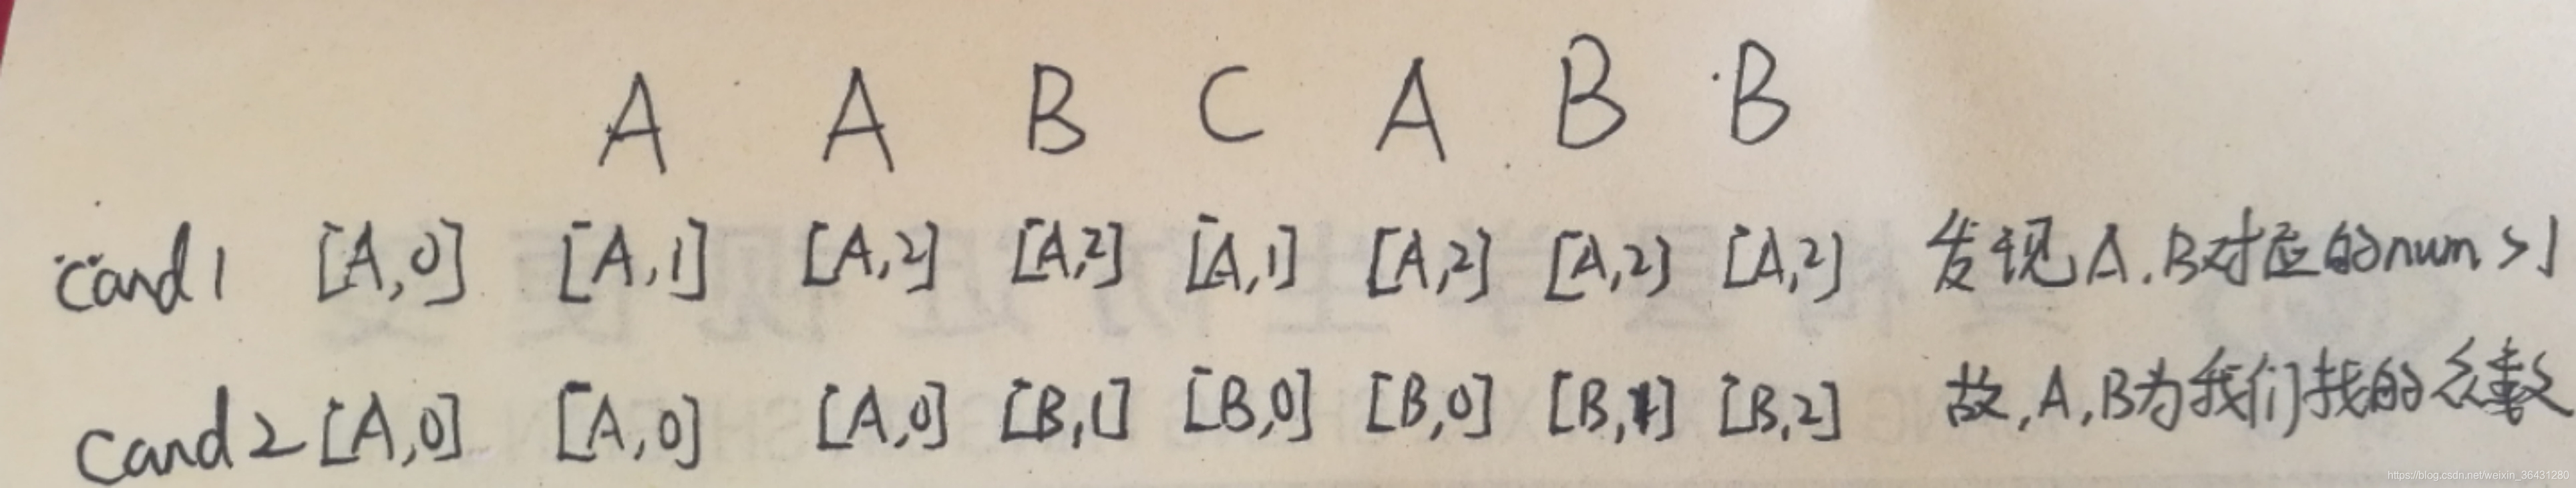 A A B C A B B
cand1 [A,0] [A,1] [A,2] [A,2] [A,1] [A,2] [A,2] [A,2] 发现A.B对应的num>1
cand2 [A,0] [A,0] [A,0] [B,1] [B,0] [B,0] [B,1] [B,2] 故,A,B为我们找的众数
https://blog.csdn.net/weixin_36431280